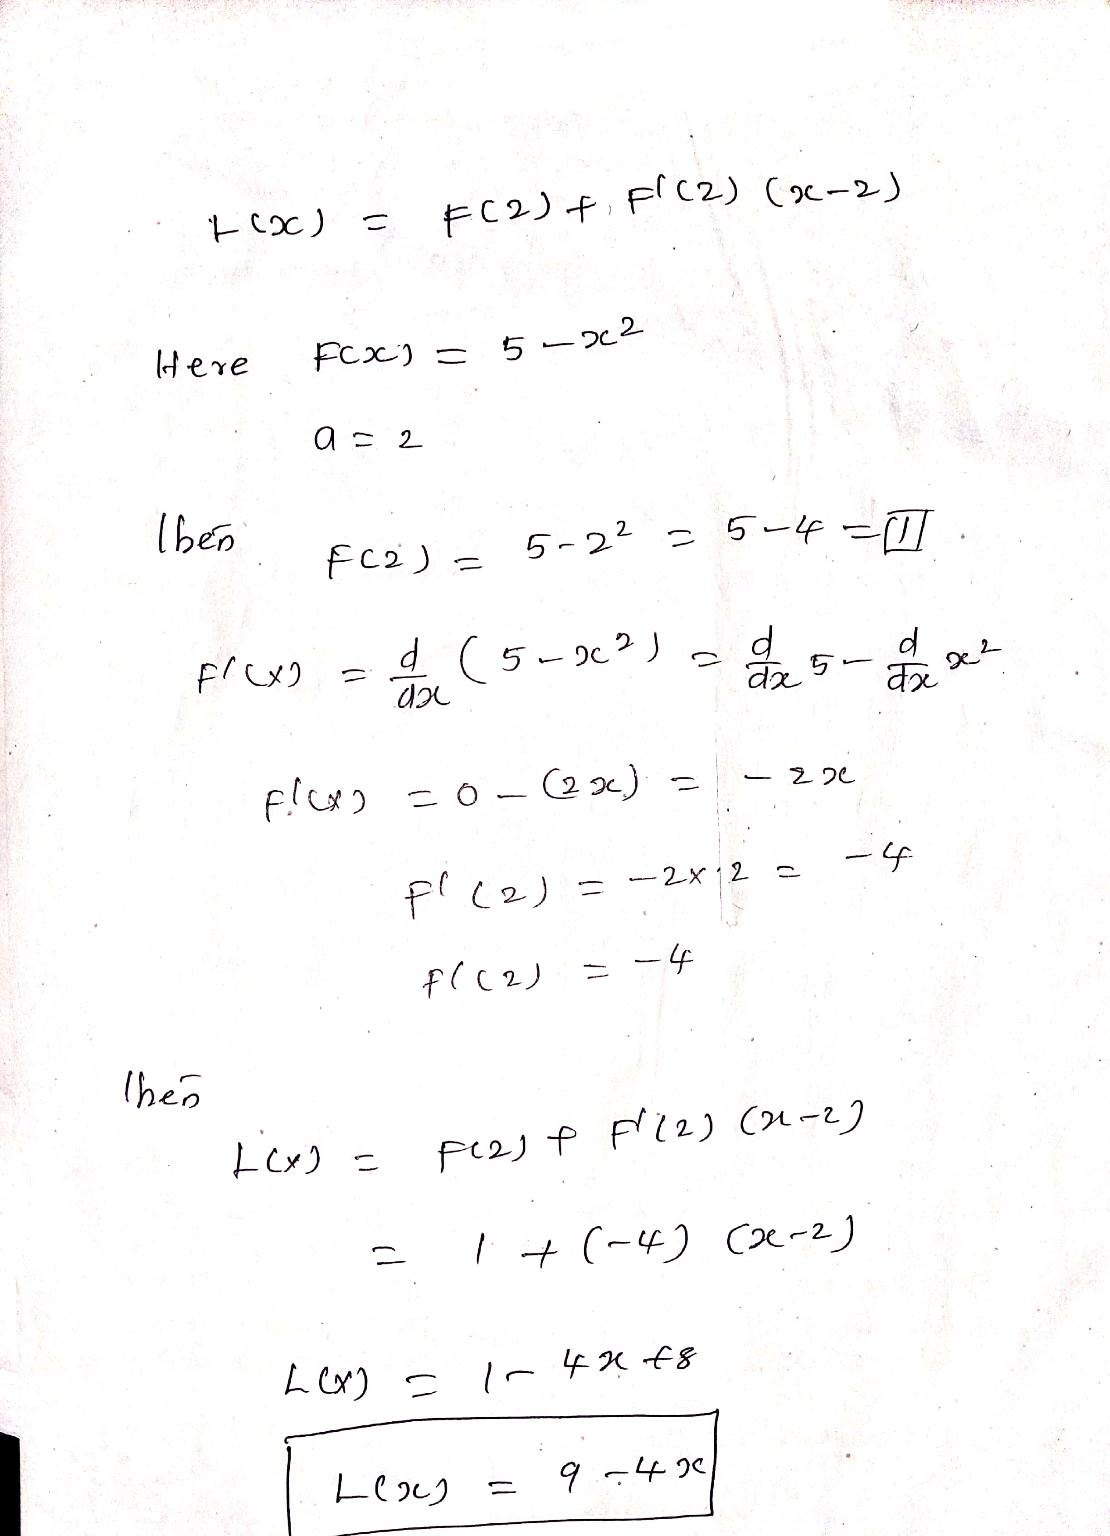 L(x) = F(2) + F'(2) (x-2)
Here F(x) = 5 - x²
a = 2
Then F(2) = 5-2² = 5-4 = 1
F'(x) = d/dx (5-x²) = d/dx 5 - d/dx x²
F'(x) = 0 - (2x) = - 2x
F'(2) = -2x2 = -4
F'(2) = -4
Then
L(x) = F(2) + F'(2) (x-2)
= 1 + (-4) (x-2)
L(x) = 1 - 4x +8
L(x) = 9 - 4x